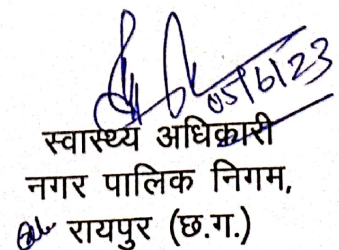 05/6/23
स्वास्थ्य अधिकारी
नगर पालिक निगम,
रायपुर (छ.ग.)